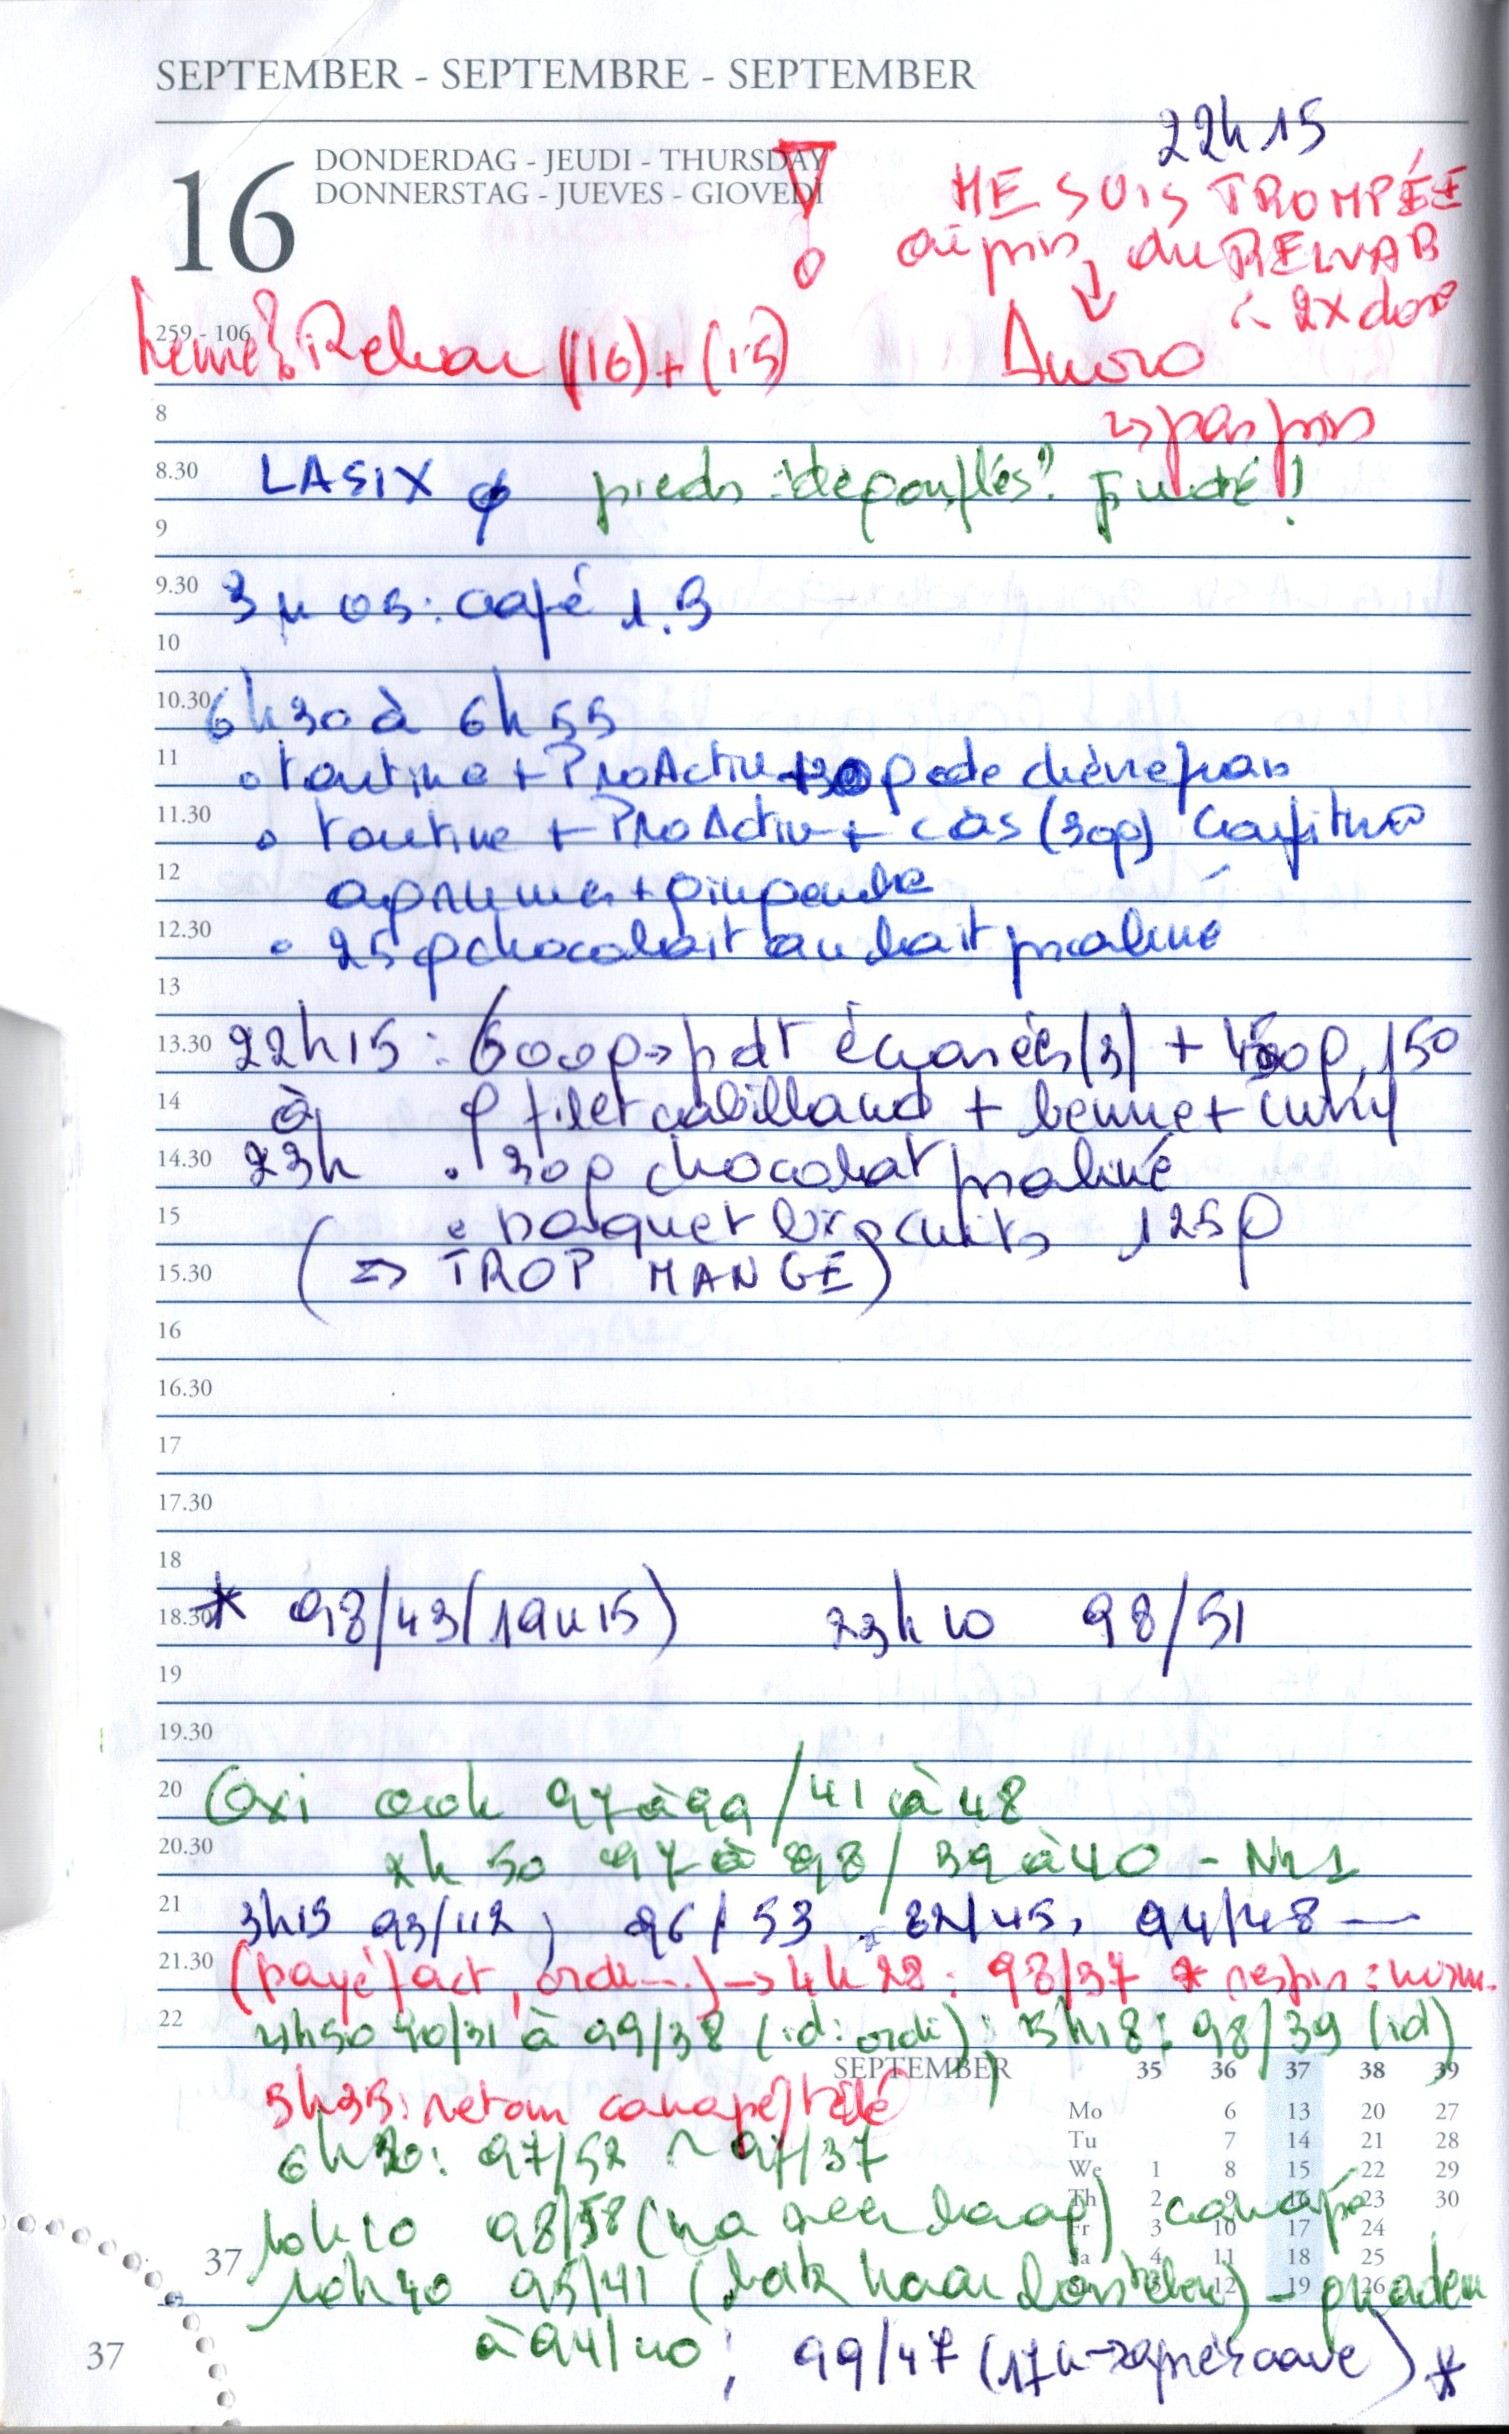 SEPTEMBER - SEPTEMBRE - SEPTEMBER
22h15
16
DONDERDAG - JEUDI - THURSDAY
DONNERSTAG - JUEVES - GIOVEDÌ
!
ME SUIS TROMPÉE
ai pris du RELVAR
2x dose
259 - 106
Relvar (16)+(15)
Anoro
8
→ pas pris
8.30 LASIX φ pieds : dégonflés?
9
9.30 3h05: café 1.3
10
10.30 6h30 à 6h55
11 • tartine + ProActiv + 30g de chèvre frais
11.30 • tartine + ProActiv + càs (30g) confiture
12 agrumes + gingembre
12.30 • 25g chocolat au lait praliné
13
13.30 22h15 : 600g → pdt écrasées (3) + 150
14 à g filet cabillaud + beurre + curry
14.30 23h • 30g chocolat praliné
15 • paquet biscuits 125g
15.30 (⇒ TROP MANGÉ)
16
16.30
17
17.30
18
18.30 * 98/43 (19h15) 23h10 98/51
19
19.30
20 Oxi 97 à 99/41 à 48
20.30 2h50 97 à 98/39 à 40 -
21 3h15 93/112, 96/53, 82/45, 94/48 —
21.30 (payé fact, ordi...) → 4h28 : 98/37 * respir : norm.
22 4h50 90/31 à 99/38 (id: ordi); 5h18: 98/39 (id)
SEPTEMBER 35 36 37 38 39
5h35: retour canapé/télé
Mo 6 13 20 27
6h20: 97/52 ~ 97/37
Tu 7 14 21 28
We 1 8 15 22 29
Th 2 9 16 23 30
10h10 98/58 (na) canapé
Fr 3 10 17 24
37
Sa 4 11 18 25
10h40 95/41
Su 5 12 19 26
à 94/40; 99/47 (17h → après cave) *
37